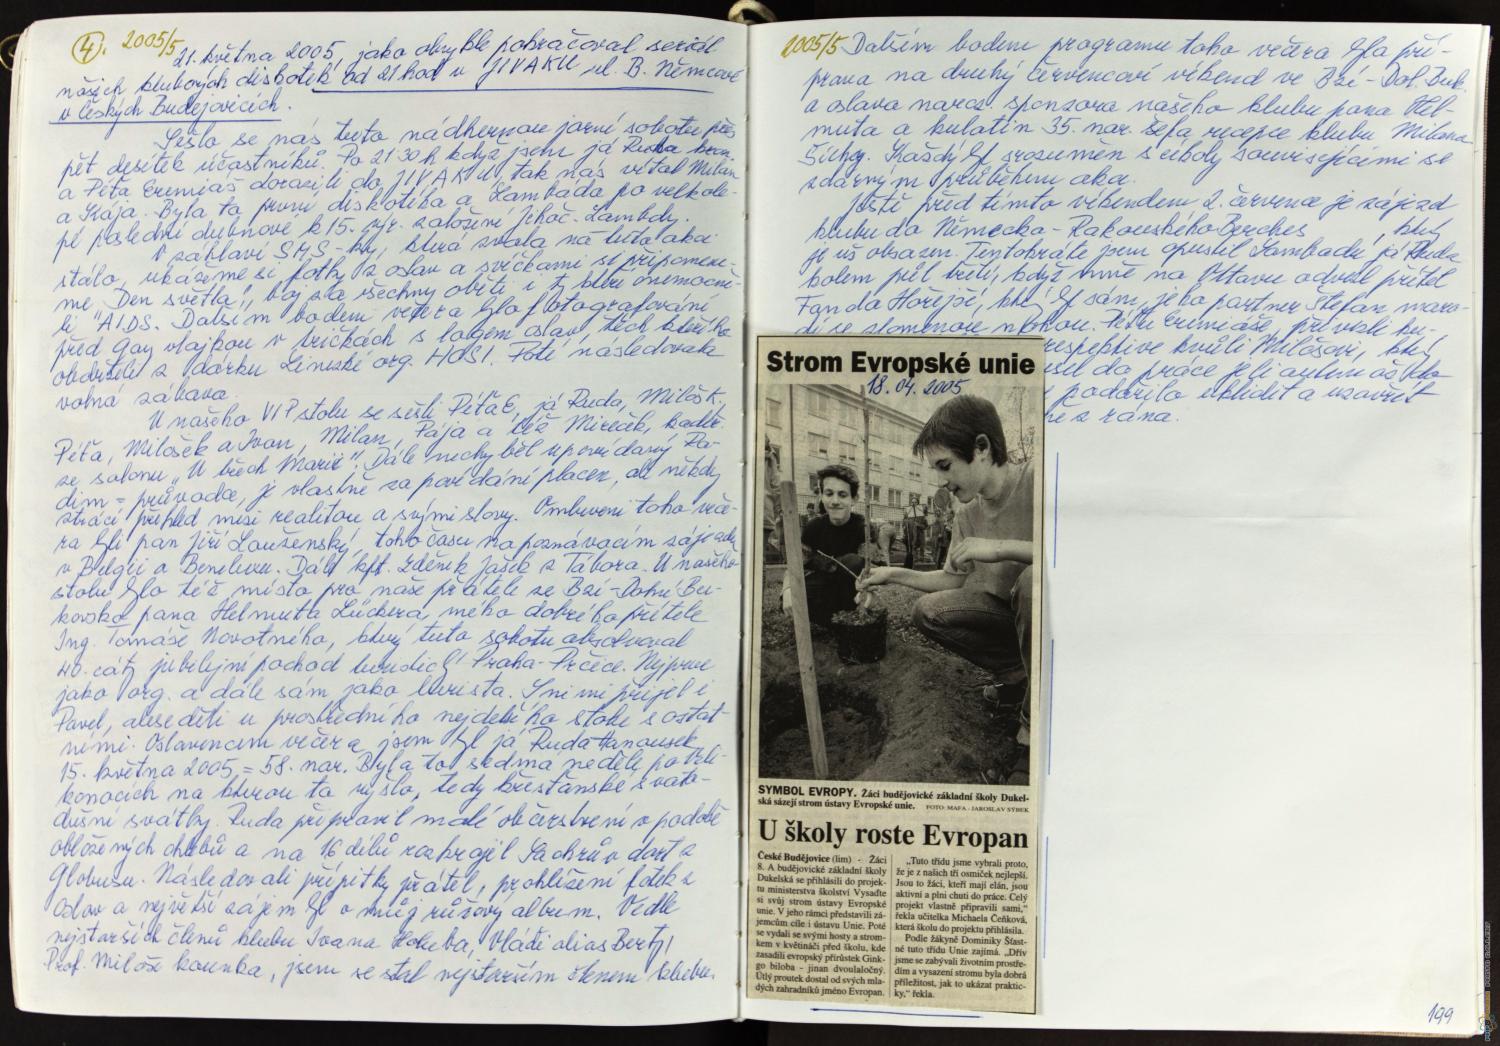 4. 2005/5
21. května 2005, jako obvykle pokračoval seriál
našich klubových diskoték, od 21 hod v JIVAKU ul. B. Němcové
v českých Budějovicích.
Sešlo se nás tuto nádhernou jarní sobotu přes
pět desítek účastníků. Po 21 30 h když jsem já Ruda
a Péťa Eremiáš dorazili do JIVAKU, tak nás vítal Milan
a Kája. Byla to první diskotéka a Lambáda po velkole-
pé poslední dubnové k 15. výr. založení Jihoč. Lambdy.
V záhlaví SMS-ky, která zvala na tuto akci
stálo, ukážeme si fotky z oslav a svíčkami si připomene-
me "Den světla", boj za všechny oběti i ty kteří onemocně-
li "AIDS. Dalším bodem večera bylo fotografování
před Gay vlajkou v tričkách s logem oslav, těch kteří ho
obdrželi z dárku Linecké org. HOSI. Poté následovala
volná zábava.
U našeho VIP stolu se sešli Péťa E, já Ruda, Milošk.
Péťa, Milošek a Ivan, Milan, Pája a též Mireček, kadeř.
ze salonu "U všech Marií". Dále nechyběl upovídaný Ra-
dim = průvodce, je vlastně za povídání placen, ale někdy
ztrácí přehled mezi realitou a svými slovy. Omluveni toho veče-
ra byli pan Jiří Louženský, toho času na poznávacím zájezdu
v Belgii a Beneluxu. Dále kpt. Zděněk Jašek z Tábora. U našeho
stolu bylo též místo pro naše přátele ze Bzí-Dolní Bu-
kovsko pana Helmuta Lückera, mého dobrého přítele
Ing. Tomáše Novotného, který tuto sobotu absolvoval
40. cátý jubilejní pochod Praha-Prčice. Nejprve
jako org. a dále sám jako turista. S nimi přijel i
Pavel, ale seděli u prostředního nejdelšího stolu s ostat-
ními. Oslavencem večera jsem byl já Ruda Hanousek
15. května 2005 = 58. nar. Byla to sedmá neděle po Veli-
konocích na kterou to vyšlo, tedy křesťanské svato-
dušní svátky. Ruda připravil malé občerstvení v podobě
obložených chlebů a na 16 dílů rozkrájel Sachrův dort z
Globusu. Následovali přípitky přátel, prohlížení fotek z
oslav a největší zájem byl o můj růžový album. Vedle
nejstarších členů klubu Ivana Holuba, Vládi alias Berty,
Prof. Miloše kounka, jsem se stal nejstarším členem klubu.
2005/5 Dalším bodem programu toho večera byla pří-
prava na druhý červencový víkend ve Bzí-Dol. Buk.
a oslava naroz. sponzora našeho klubu pana Hel-
muta a kulatin 35. nar. šéfa recepce klubu Milana
Každý byl srozuměn s úkoly souvisejícími se
zdárným průběhem akce.
Ještě před tímto víkendem 2. července je zájezd
klubu do Německo-Rakouského Berches , který
je už obsazen. Tentokráte jsem opustil Lambadu já Ruda
kolem půl třetí, když mně na Ottavu odvezl přítel
Fanda Hořejší, který byl sám, jeho partner Štefan maro-
dí se zlomenou nohou. Péťu Eremiáše, přivezli ku-
respektive kvůli Milošovi, který
do práce jeli autem až do
podařilo uklidit a uzavřít
ně z rána.
Strom Evropské unie
18.04.2005
SYMBOL EVROPY. Žáci budějovické základní školy Dukel-
ská sázejí strom ústavy Evropské unie. FOTO: MAFA - JAROSLAV SÝBEK
U školy roste Evropan
České Budějovice (lim) - Žáci
8. A budějovické základní školy
Dukelská se přihlásili do projek-
tu ministerstva školství Vysaďte
si svůj strom ústavy Evropské
unie. V jeho rámci představili zá-
jemcům cíle i ústavu Unie. Poté
se vydali se svými hosty a strom-
kem v květináči před školu, kde
zasadili evropský přírůstek Gink-
go biloba - jinan dvoulaločný.
Útlý proutek dostal od svých mla-
dých zahradníků jméno Evropan.
„Tuto třídu jsme vybrali proto,
že je z našich tří osmiček nejlepší.
Jsou to žáci, kteří mají elán, jsou
aktivní a plni chuti do práce. Celý
projekt vlastně připravili sami,“
řekla učitelka Michaela Čeňková,
která školu do projektu přihlásila.
Podle žákyně Dominiky Šťast-
né tuto třídu Unie zajímá. „Dřív
jsme se zabývali životním prostře-
dím a vysazení stromu byla dobrá
příležitost, jak to ukázat praktic-
ky,“ řekla.
199